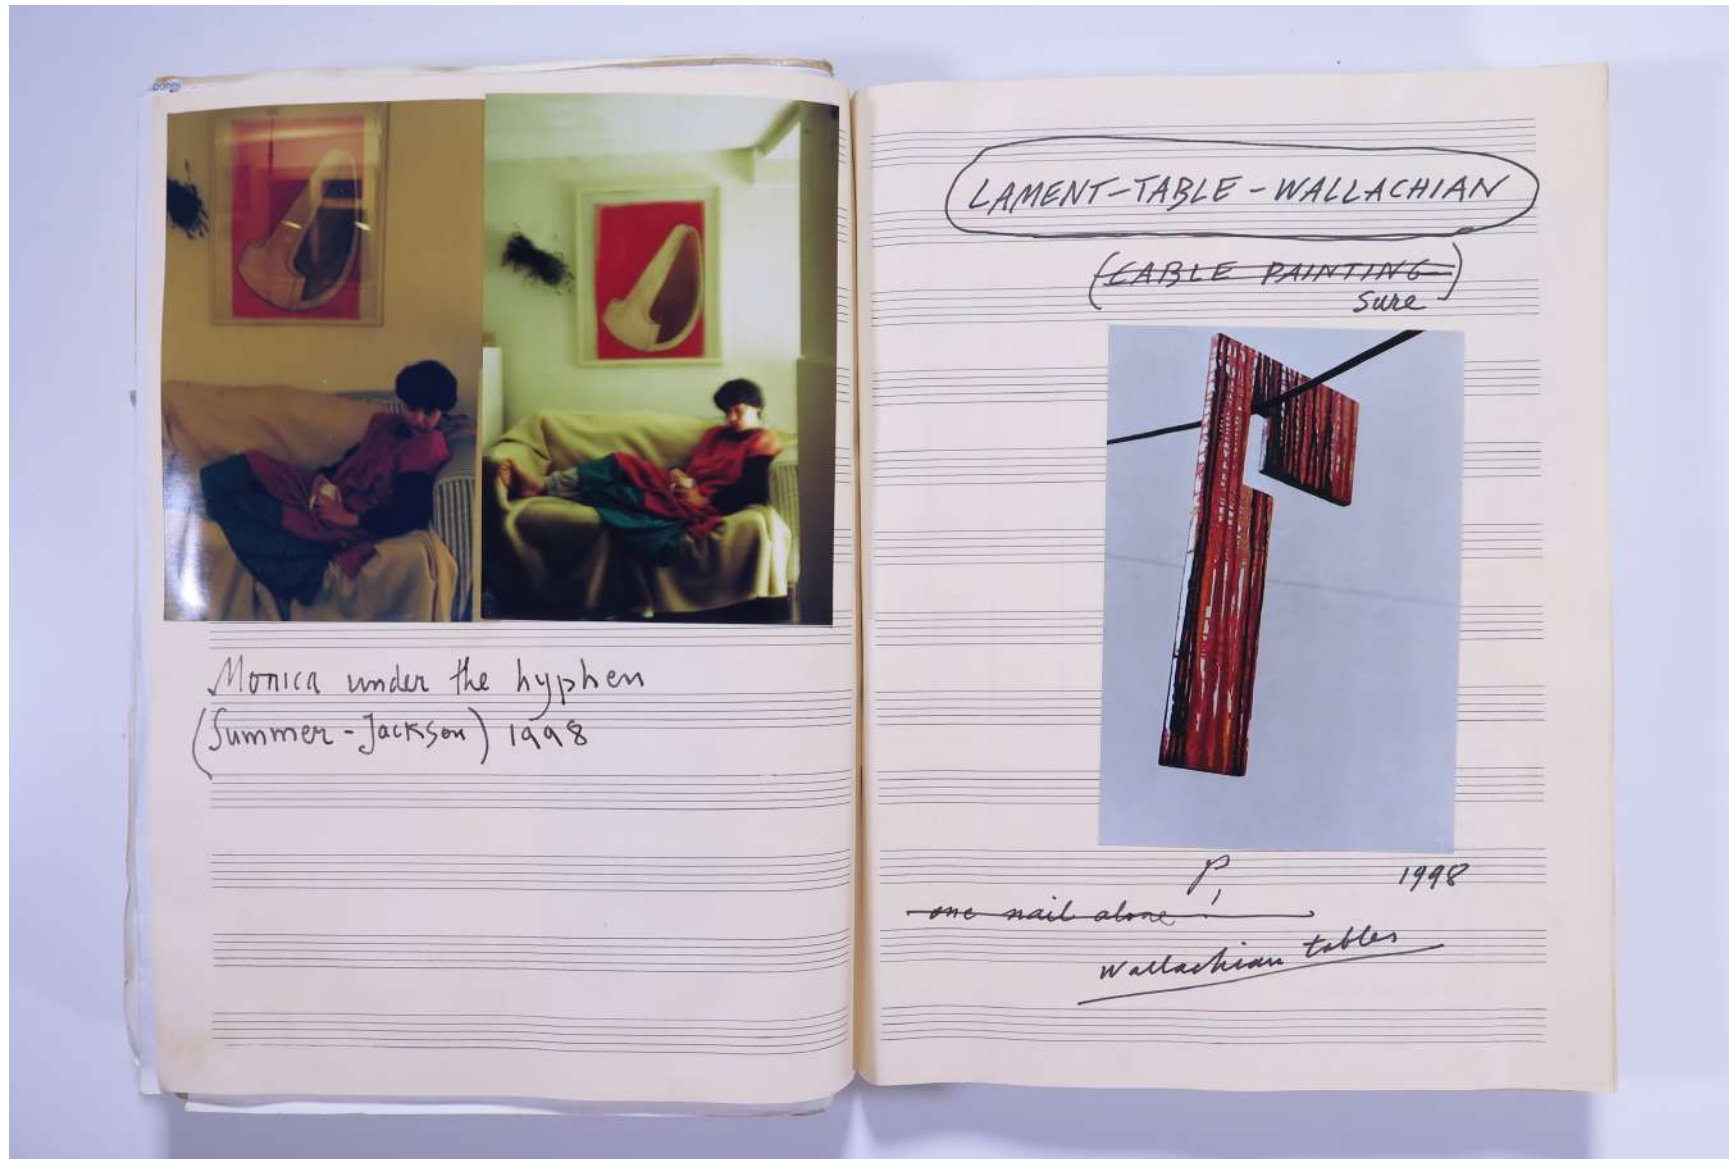 Monica under the hyphen
(Summer-Jackson) 1998
LAMENT-TABLE-WALLACHIAN
(CABLE PAINTING)
sure
P,
1998
one nail alone
Wallachian tables